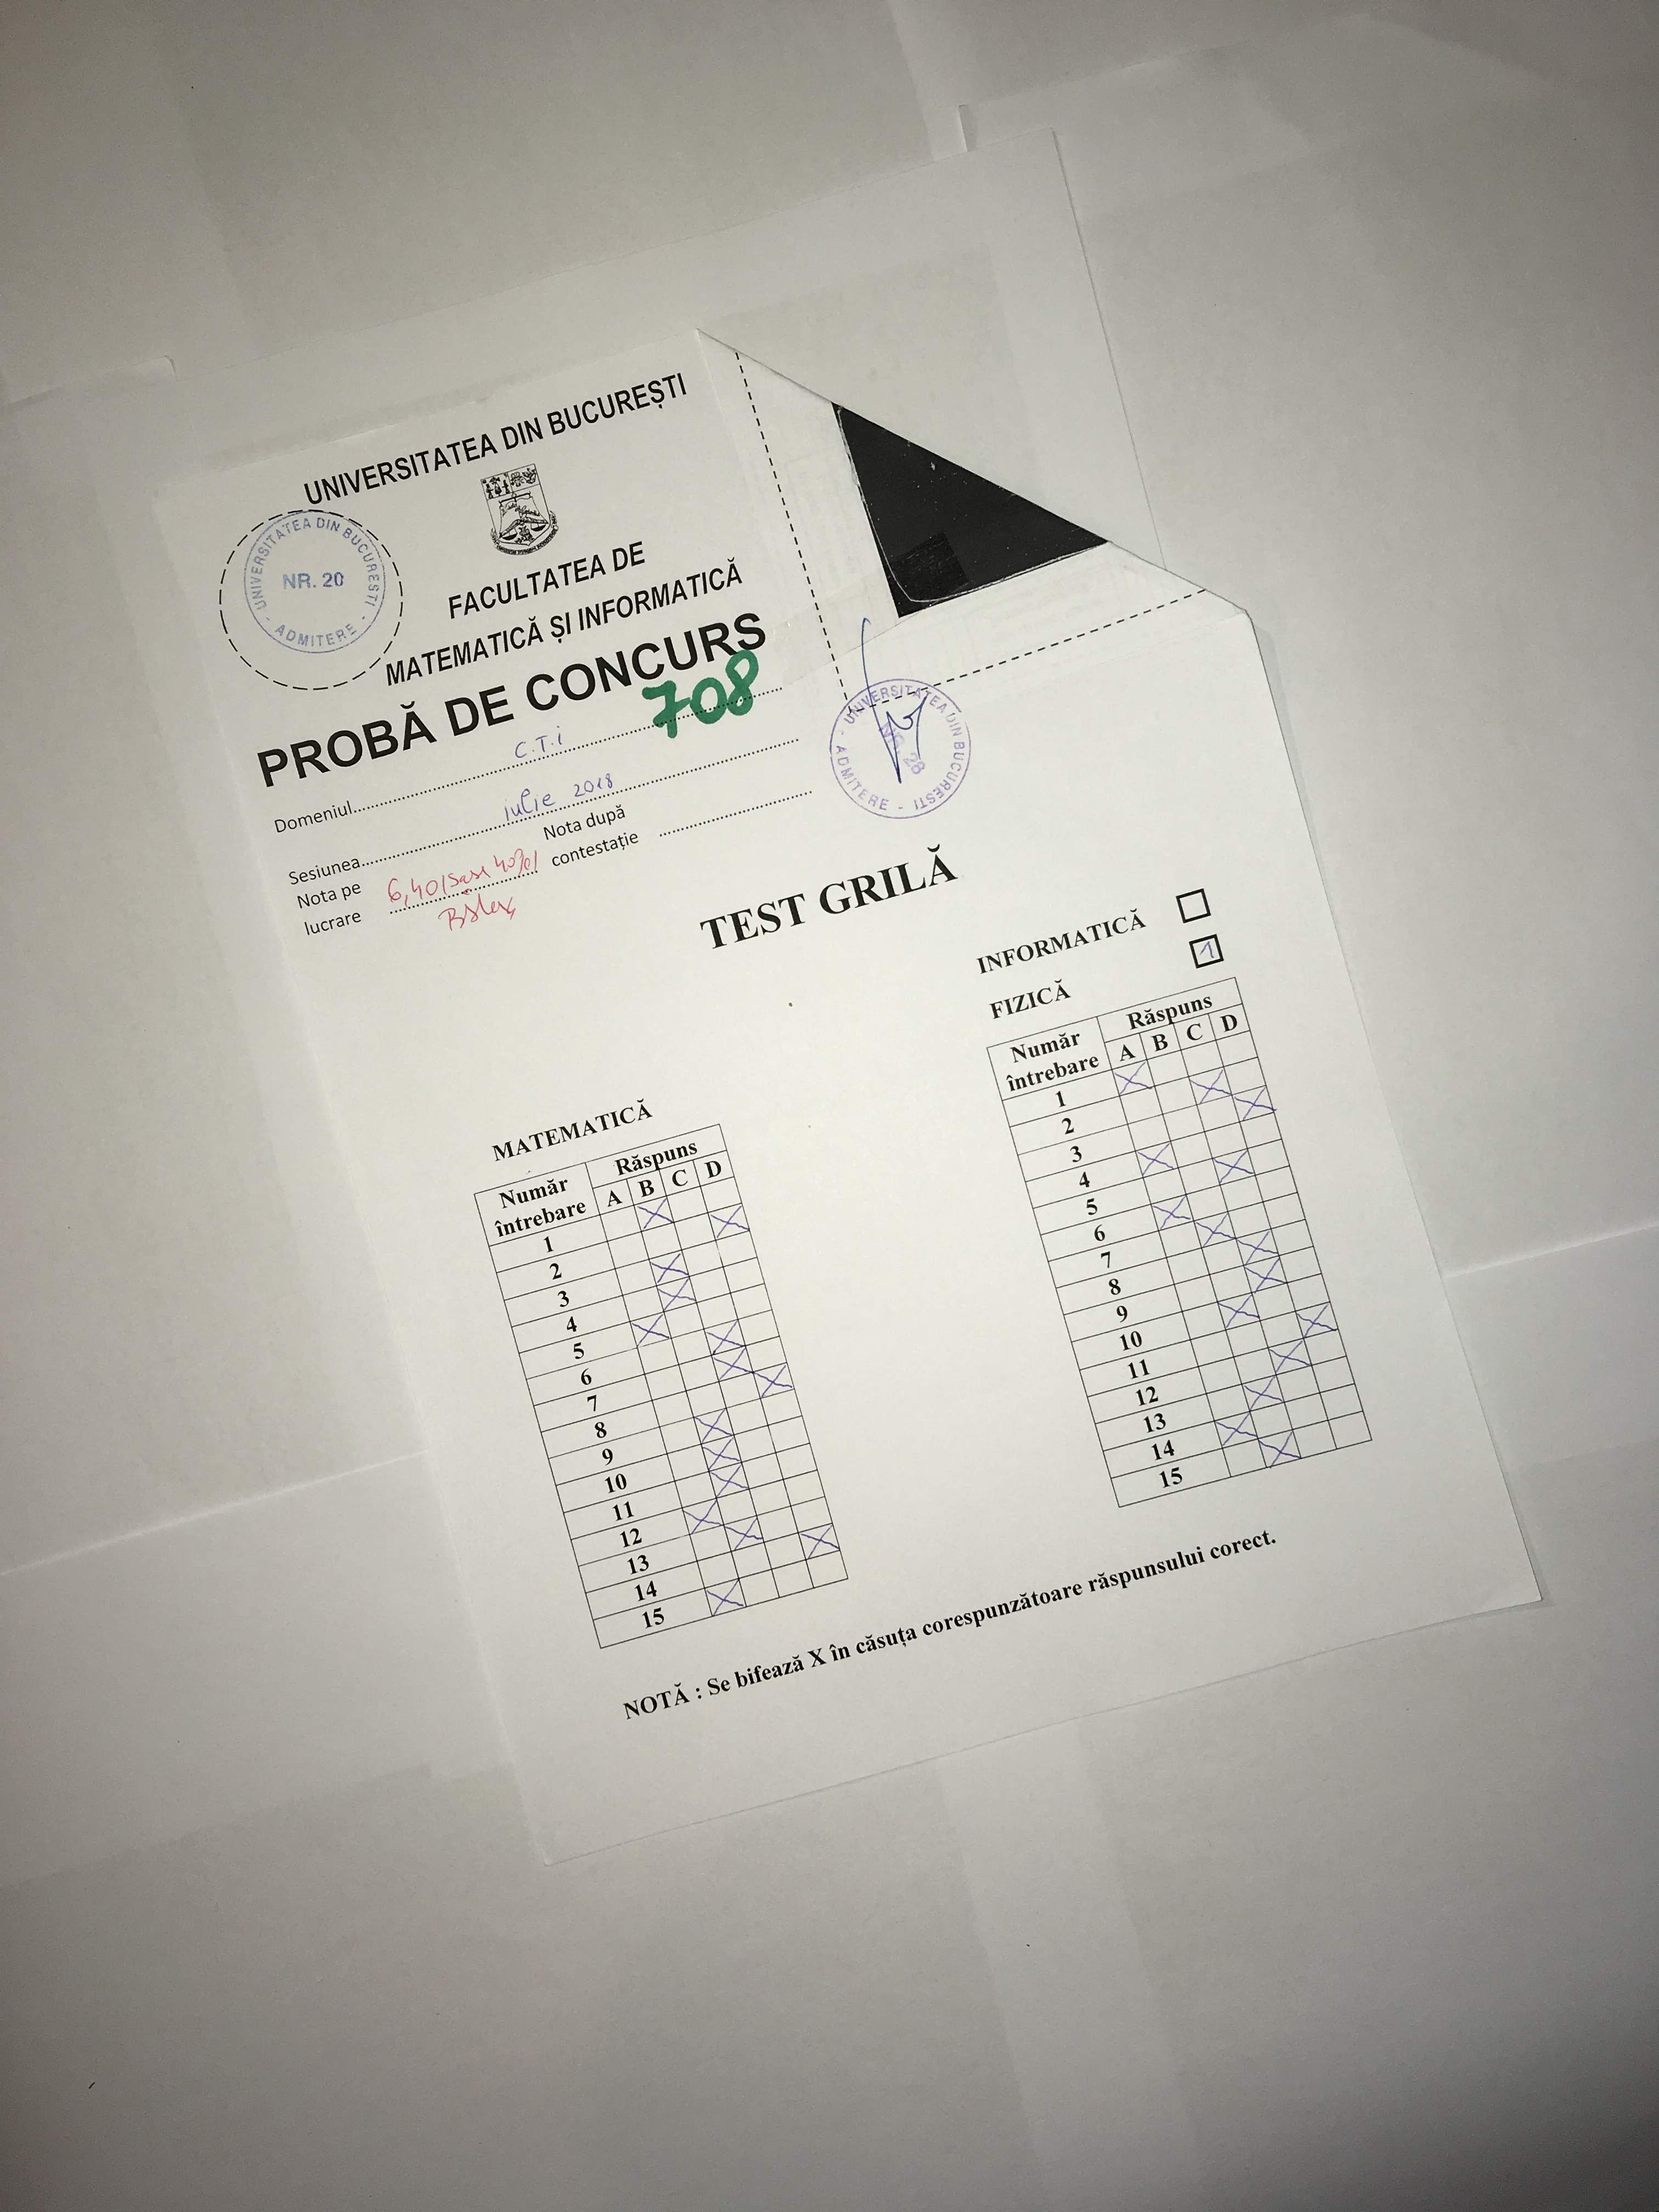 UNIVERSITATEA DIN BUCUREȘTI
UNIVERSITATEA DIN BUCUREȘTI - ADMITERE -
NR. 20
FACULTATEA DE
MATEMATICĂ ȘI INFORMATICĂ
PROBĂ DE CONCURS
708
Domeniul C.T.i
Sesiunea iulie 2018
Nota pe lucrare 6,40
Nota după contestație
UNIVERSITATEA DIN BUCURESTI - ADMITERE -
NR. 28
TEST GRILĂ
INFORMATICĂ
FIZICĂ 1
MATEMATICĂ
Număr întrebare Răspuns
A B C D
1 X
2 X
3 X
4 X
5 X
6 X
7 X
8 X
9 X
10 X
11 X
12 X
13 X
14 X
15 X
Număr întrebare Răspuns
A B C D
1 X
2 X
3 X
4 X
5 X
6 X
7 X
8 X
9 X
10 X
11 X
12 X
13 X
14 X
15 X
NOTĂ : Se bifează X în căsuța corespunzătoare răspunsului corect.